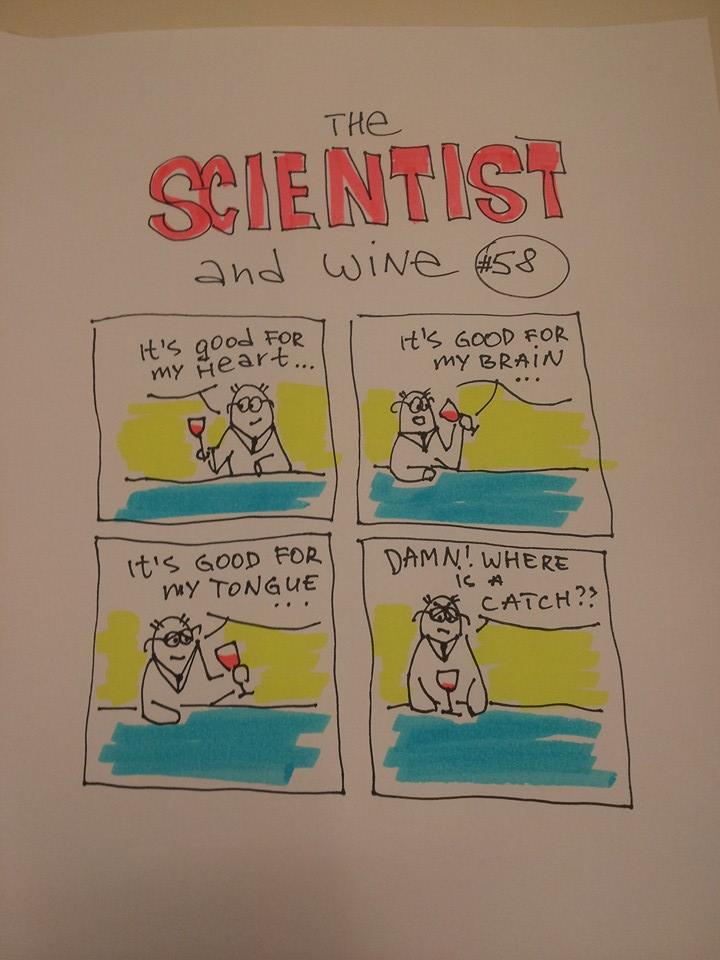 THe
SCIENTIST
and WiNe #58
It's good FOR
my Heart...
It's GOOD FOR
my BRAIN
...
It's GOOD FOR
my TONGUE
...
DAMN! WHERE
is A
CATCH??